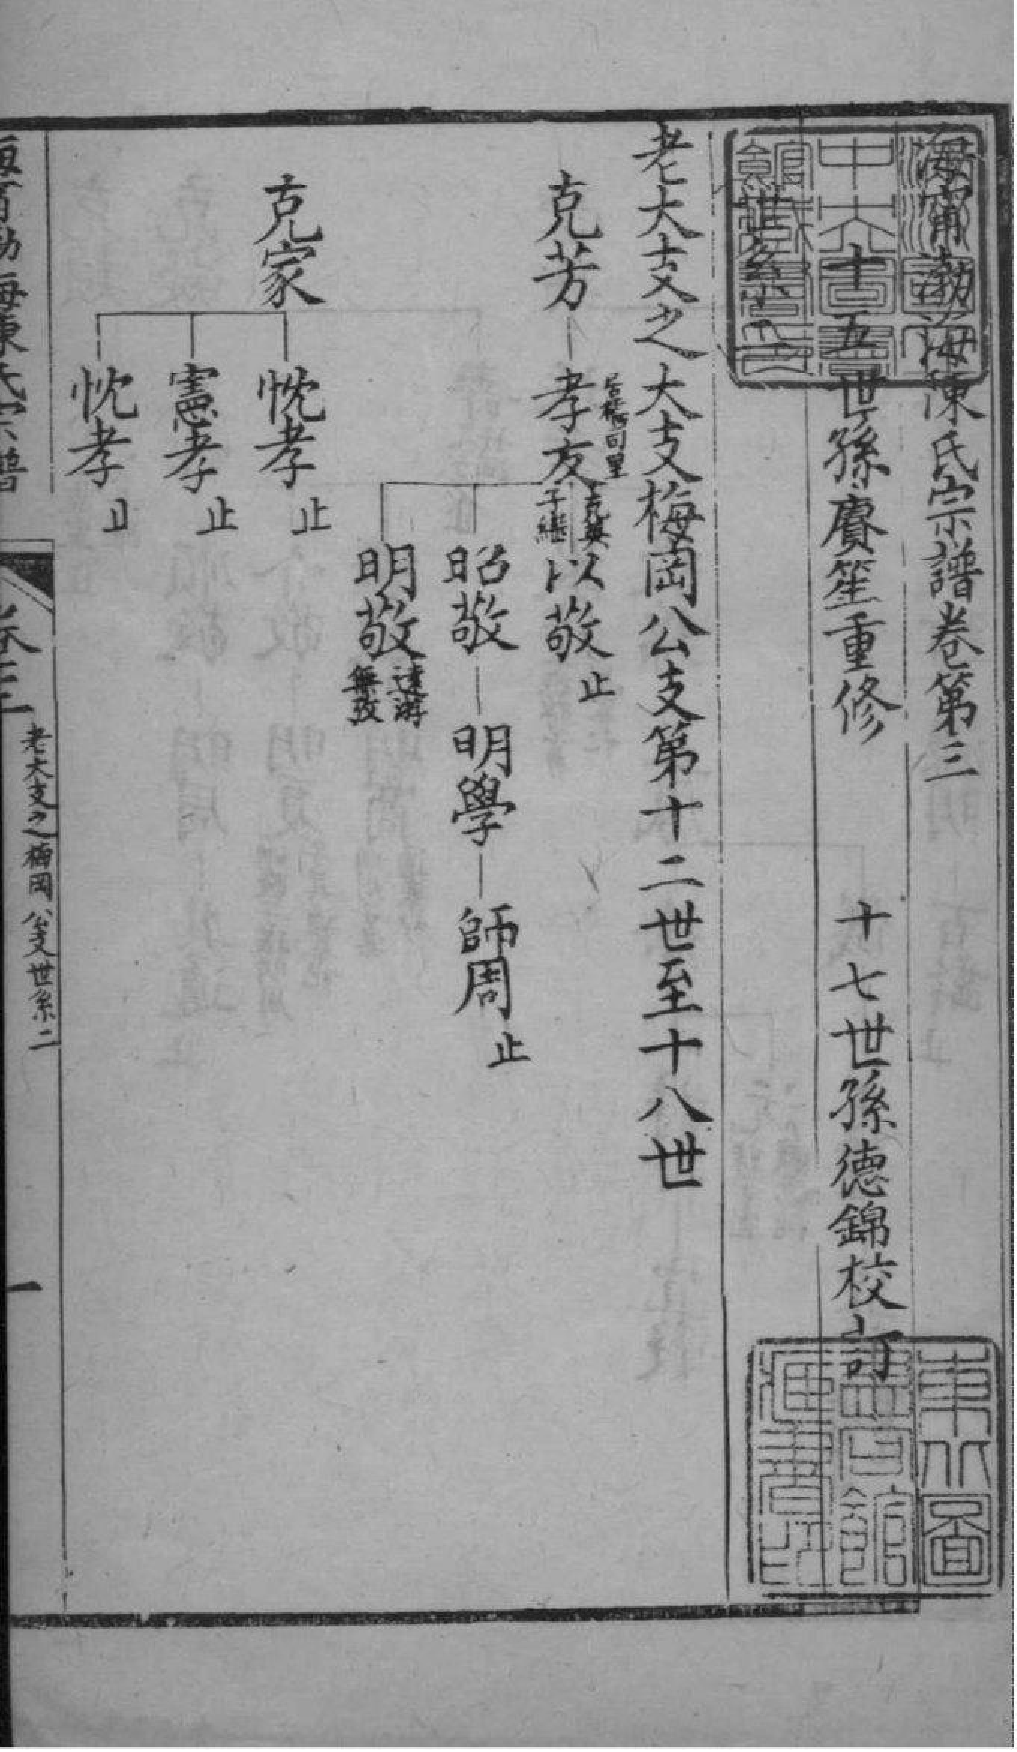 海甯渤海陳氏宗譜卷第三
世系二
十五世孫賡笙重修 十七世孫德錦校訂
老大支之大支梅岡公支第十二世至十八世
克芳
孝友
克英
子繼
以敬 止
昭敬
明學
師周 止
明敬
遠游
無攷
克家
忱孝 止
憲孝 止
忱孝 止
海甯渤海陳氏宗譜
卷三
老大支之梅岡公支世系二
一